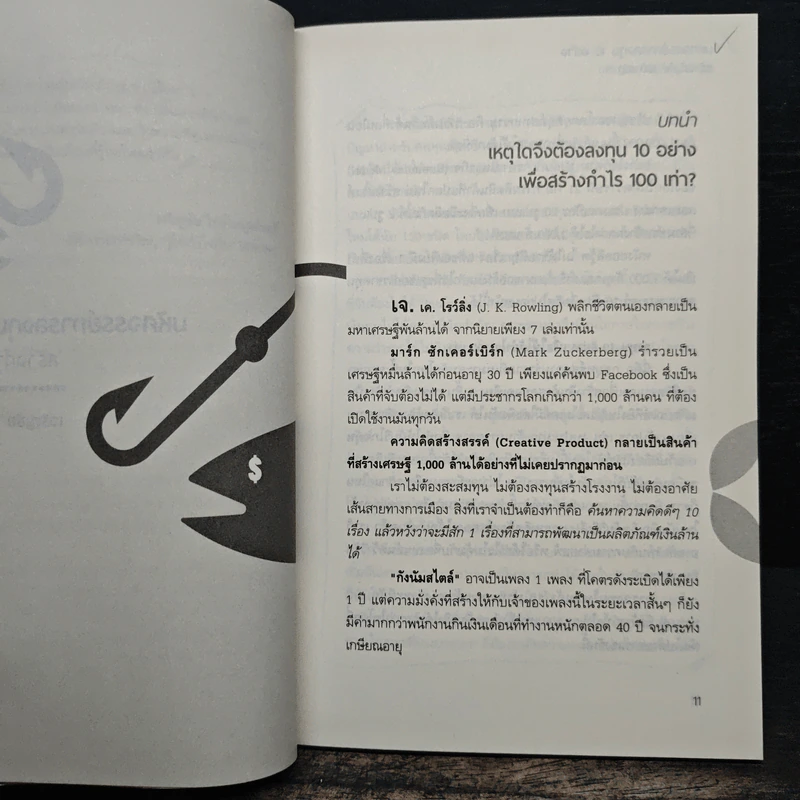 บทนำ
เหตุใดจึงต้องลงทุน 10 อย่าง
เพื่อสร้างกำไร 100 เท่า?
เจ. เค. โรว์ลิ่ง (J. K. Rowling) พลิกชีวิตตนเองกลายเป็น
มหาเศรษฐีพันล้านได้ จากนิยายเพียง 7 เล่มเท่านั้น
มาร์ก ซักเคอร์เบิร์ก (Mark Zuckerberg) ร่ำรวยเป็น
เศรษฐีหมื่นล้านได้ก่อนอายุ 30 ปี เพียงแค่ค้นพบ Facebook ซึ่งเป็น
สินค้าที่จับต้องไม่ได้ แต่มีประชากรโลกเกินกว่า 1,000 ล้านคน ที่ต้อง
เปิดใช้งานมันทุกวัน
ความคิดสร้างสรรค์ (Creative Product) กลายเป็นสินค้า
ที่สร้างเศรษฐี 1,000 ล้านได้อย่างที่ไม่เคยปรากฏมาก่อน
เราไม่ต้องสะสมทุน ไม่ต้องลงทุนสร้างโรงงาน ไม่ต้องอาศัย
เส้นสายทางการเมือง สิ่งที่เราจำเป็นต้องทำก็คือ ค้นหาความคิดดีๆ 10
เรื่อง แล้วหวังว่าจะมีสัก 1 เรื่องที่สามารถพัฒนาเป็นผลิตภัณฑ์เงินล้าน
ได้
"กังนัมสไตล์" อาจเป็นเพลง 1 เพลง ที่โคตรดังระเบิดได้เพียง
1 ปี แต่ความมั่งคั่งที่สร้างให้กับเจ้าของเพลงนี้ในระยะเวลาสั้นๆ ก็ยัง
มีค่ามากกว่าพนักงานกินเงินเดือนที่ทำงานหนักตลอด 40 ปี จนกระทั่ง
เกษียณอายุ
$
11